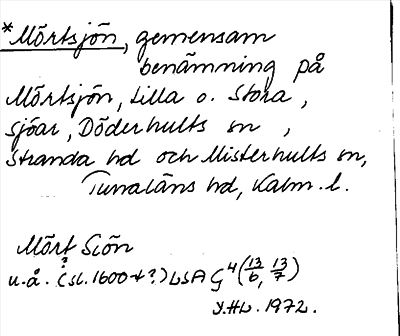 *Mörtsjön, gemensam
benämning på
Mörtsjön, Lilla o. Stora,
sjöar, Döderhults sn,
Stranda hd och Misterhults sn,
Tunaläns hd, Kalm. l.
Mört Siön
?
u.å. (sl. 1600-t?) LSA G4 (13/6, 13/7)
1972.